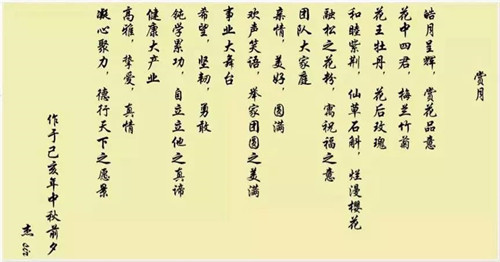 赏月
皓月呈辉，赏花品意
花中四君，梅兰竹菊
花王牡丹，花后玫瑰
和睦紫荆，仙草石斛，烂漫樱花
融松之花粉，寓祝福之意
团队大家庭
亲情，美好，圆满
欢声笑语，举家团圆之美满
事业大舞台
希望，坚韧，勇敢
钝学累功，自立立他之真谛
健康大产业
高雅，挚爱，真情
凝心聚力，德行天下之愿景
作于己亥年中秋前夕
杰